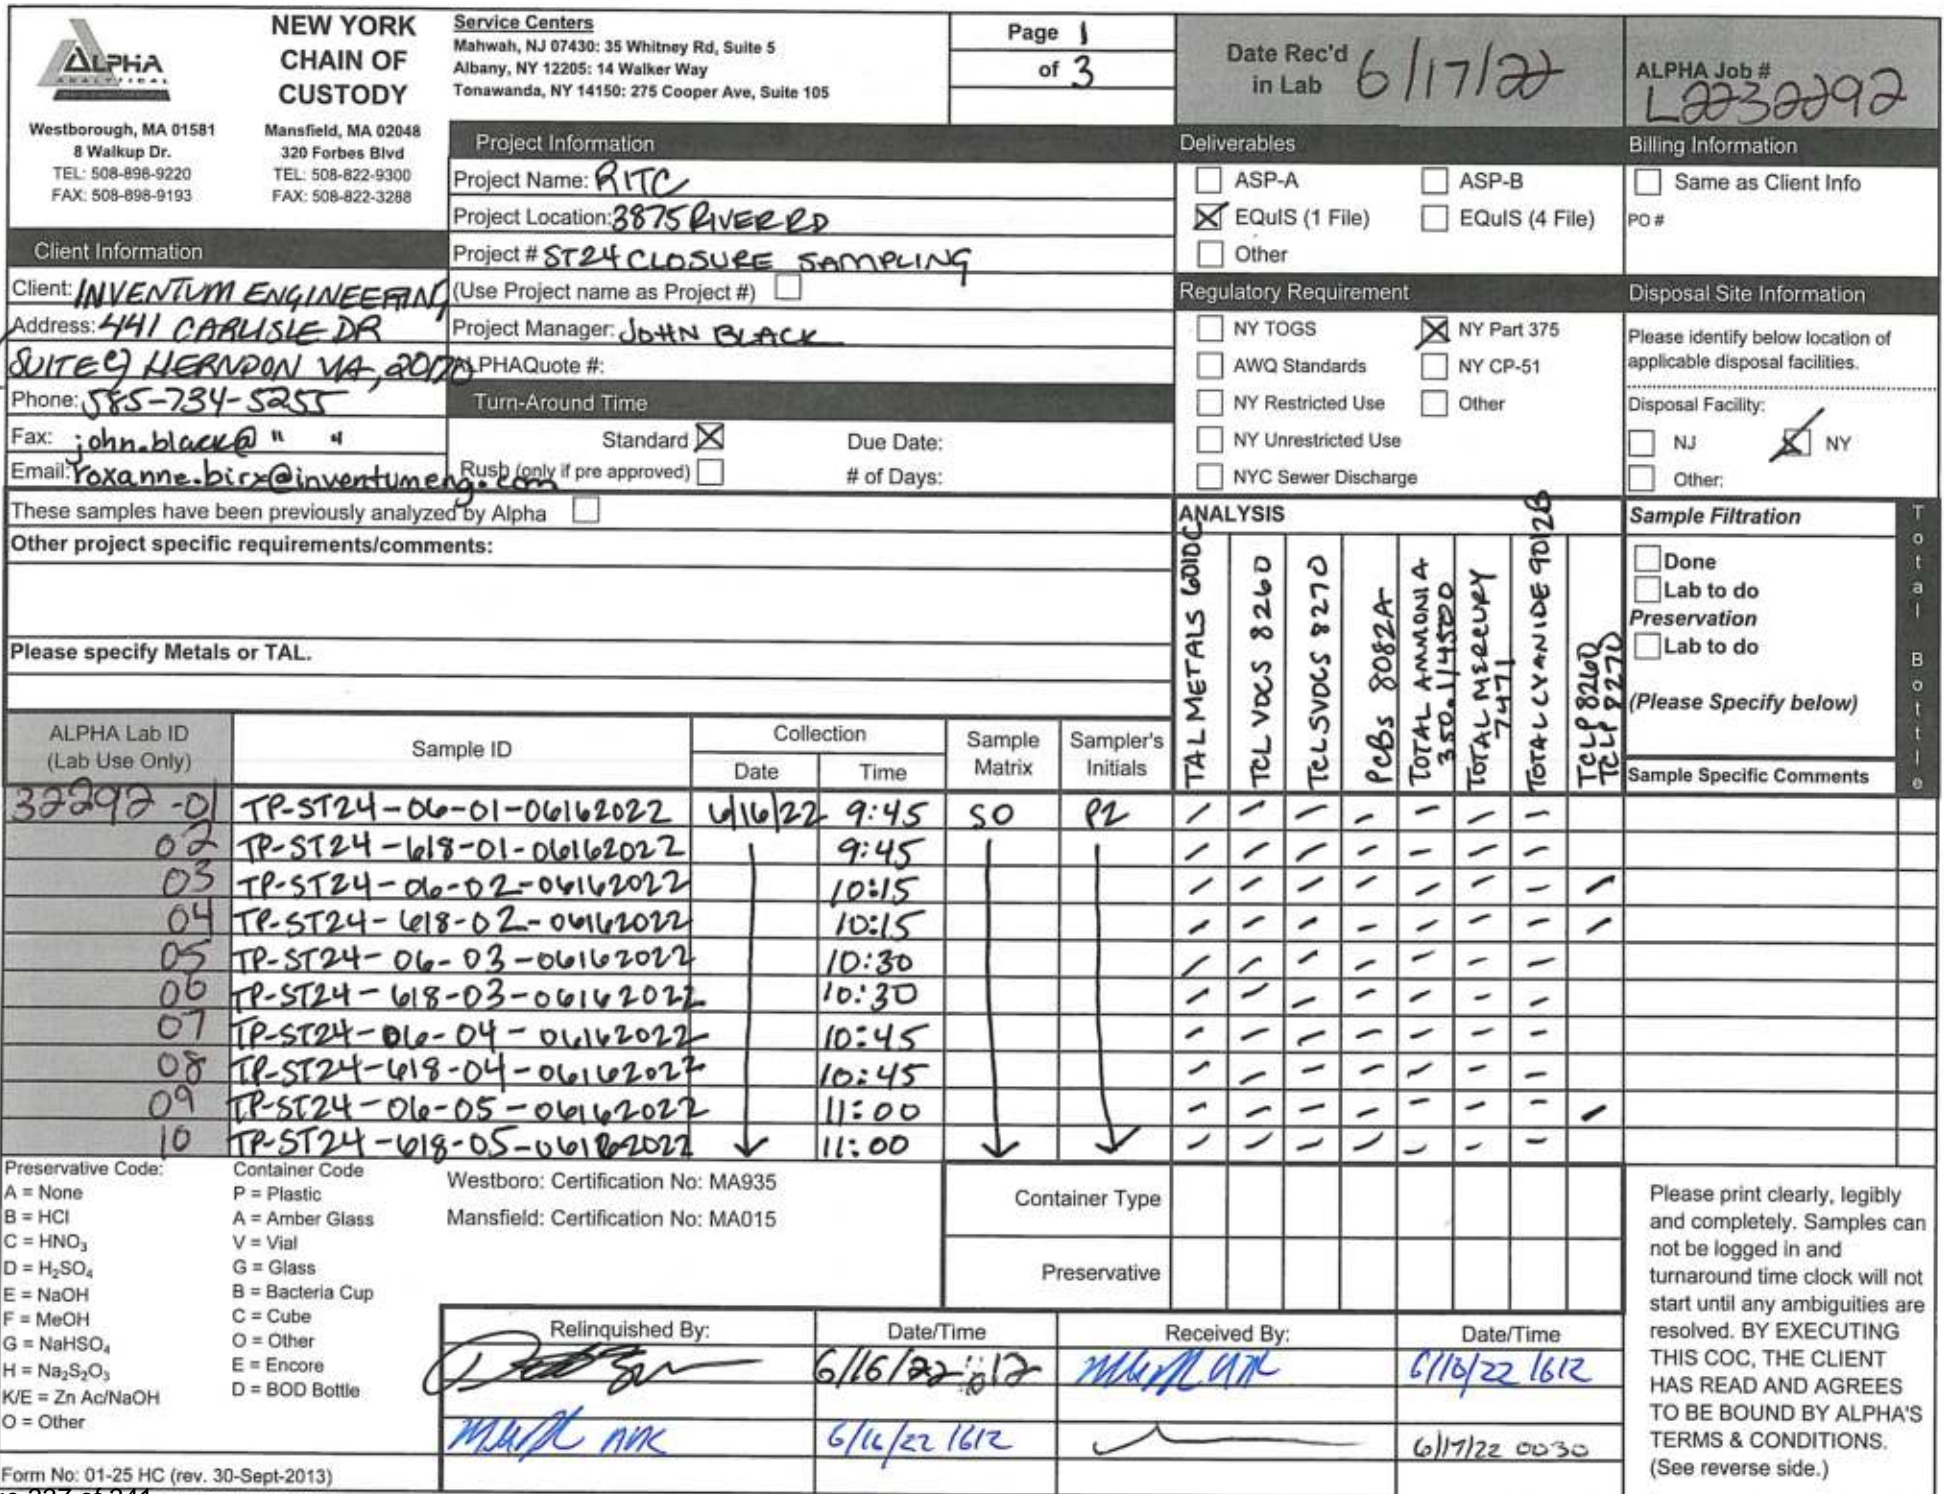 ALPHA
ANALYTICAL
NEW YORK
CHAIN OF
CUSTODY
Westborough, MA 01581
8 Walkup Dr.
TEL: 508-898-9220
FAX: 508-898-9193
Mansfield, MA 02048
320 Forbes Blvd
TEL: 508-822-9300
FAX: 508-822-3288
Service Centers
Mahwah, NJ 07430: 35 Whitney Rd, Suite 5
Albany, NY 12205: 14 Walker Way
Tonawanda, NY 14150: 275 Cooper Ave, Suite 105
Page 1
of 3
Date Rec'd
in Lab 6/17/22
ALPHA Job #
L2232292
Client Information
Client: INVENTUM ENGINEERING
Address: 441 CARLISLE DR
SUITE C, HERNDON VA, 20170
Phone: 585-734-5255
Fax: john.black@ " "
Email: roxanne.birx@inventumeng.com
Project Information
Project Name: RITC
Project Location: 3875 RIVER RD
Project # ST24 CLOSURE SAMPLING
(Use Project name as Project #)
Project Manager: JOHN BLACK
ALPHAQuote #:
Turn-Around Time
Standard Due Date:
Rush (only if pre approved) # of Days:
Deliverables
ASP-A ASP-B
EQuIS (1 File) EQuIS (4 File)
Other
Regulatory Requirement
NY TOGS NY Part 375
AWQ Standards NY CP-51
NY Restricted Use Other
NY Unrestricted Use
NYC Sewer Discharge
Billing Information
Same as Client Info
PO #
Disposal Site Information
Please identify below location of
applicable disposal facilities.
Disposal Facility:
NJ NY
Other:
These samples have been previously analyzed by Alpha
Other project specific requirements/comments:
Please specify Metals or TAL.
ANALYSIS
TAL METALS 6010C
TCL VOCS 8260
TCL SVOCS 8270
PCBs 8082A
TOTAL AMMONIA
350.1/4500
TOTAL MERCURY
7471
TOTAL CYANIDE 9012B
TCLP 8260
TCLP 8270
Sample Filtration
Done
Lab to do
Preservation
Lab to do
(Please Specify below)
Total Bottle
ALPHA Lab ID
(Lab Use Only)
Sample ID
Collection
Date Time
Sample
Matrix
Sampler's
Initials
Sample Specific Comments
32292-01 TP-ST24-06-01-06162022 6/16/22 9:45 SO PZ
02 TP-ST24-618-01-06162022 9:45
03 TP-ST24-06-02-06162022 10:15
04 TP-ST24-618-02-06162022 10:15
05 TP-ST24-06-03-06162022 10:30
06 TP-ST24-618-03-06162022 10:30
07 TP-ST24-06-04-06162022 10:45
08 TP-ST24-618-04-06162022 10:45
09 TP-ST24-06-05-06162022 11:00
10 TP-ST24-618-05-06162022 11:00
Preservative Code:
A = None
B = HCl
C = HNO₃
D = H₂SO₄
E = NaOH
F = MeOH
G = NaHSO₄
H = Na₂S₂O₃
K/E = Zn Ac/NaOH
O = Other
Container Code
P = Plastic
A = Amber Glass
V = Vial
G = Glass
B = Bacteria Cup
C = Cube
O = Other
E = Encore
D = BOD Bottle
Westboro: Certification No: MA935
Mansfield: Certification No: MA015
Container Type
Preservative
Relinquished By: Date/Time Received By: Date/Time
6/16/22 6/16/22 1612
6/16/22 1612 6/17/22 0030
Please print clearly, legibly
and completely. Samples can
not be logged in and
turnaround time clock will not
start until any ambiguities are
resolved. BY EXECUTING
THIS COC, THE CLIENT
HAS READ AND AGREES
TO BE BOUND BY ALPHA'S
TERMS & CONDITIONS.
(See reverse side.)
Form No: 01-25 HC (rev. 30-Sept-2013)